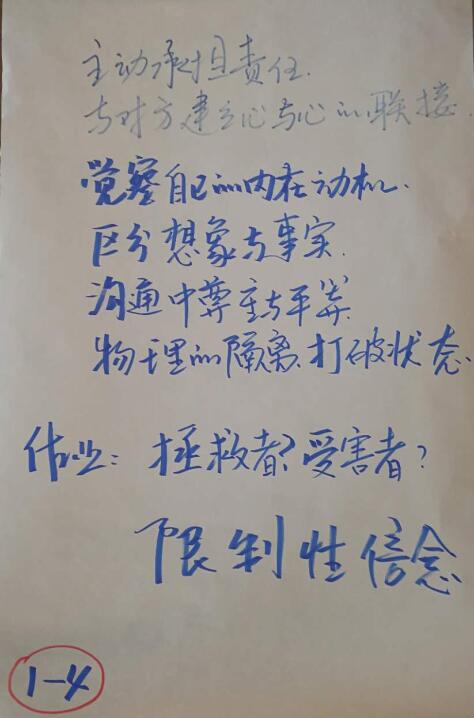 主动承担责任.
与对方建立心与心的联接.
觉察自己的内在动机.
区分想象与事实.
沟通中尊重与平等.
物理的隔离.打破状态.
作业：拯救者？受害者？
限制性信念
1-4